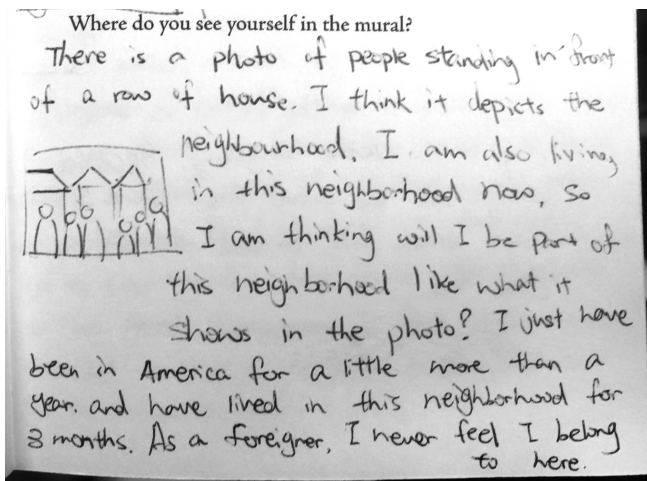 Where do you see yourself in the mural?
There is a photo of people standing in front
of a row of house. I think it depicts the
neighbourhood. I am also living
in this neighborhood now, so
I am thinking will I be part of
this neighborhood like what it
shows in the photo? I just have
been in America for a little more than a
year. and have lived in this neighborhood for
3 months. As a foreigner, I never feel I belong
to here.